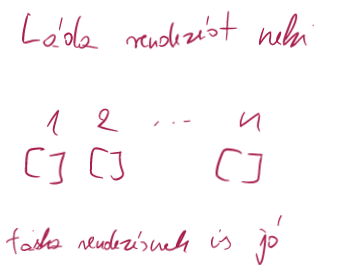 Láda rendezést neki
1 2 ... n
[] [] []
táska rendezésnek is jó